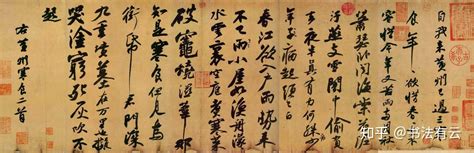 自我来黄州已過三寒
食年〻欲惜春春去不
容惜今年又苦雨兩月秋
蕭瑟卧聞海棠花泥
汙燕支雪闇中偷負
去夜半真有力何殊少
年子病起頭已白
春江欲入户雨勢来
不已雨小屋如漁舟濛〻
水雲裏空庖煮寒菜
破竈燒濕葦那
知是寒食但見烏
銜帋君門深
九重墳墓在万里也擬
哭塗窮死灰吹不
起
右黄州寒食二首
知乎 @书法有云